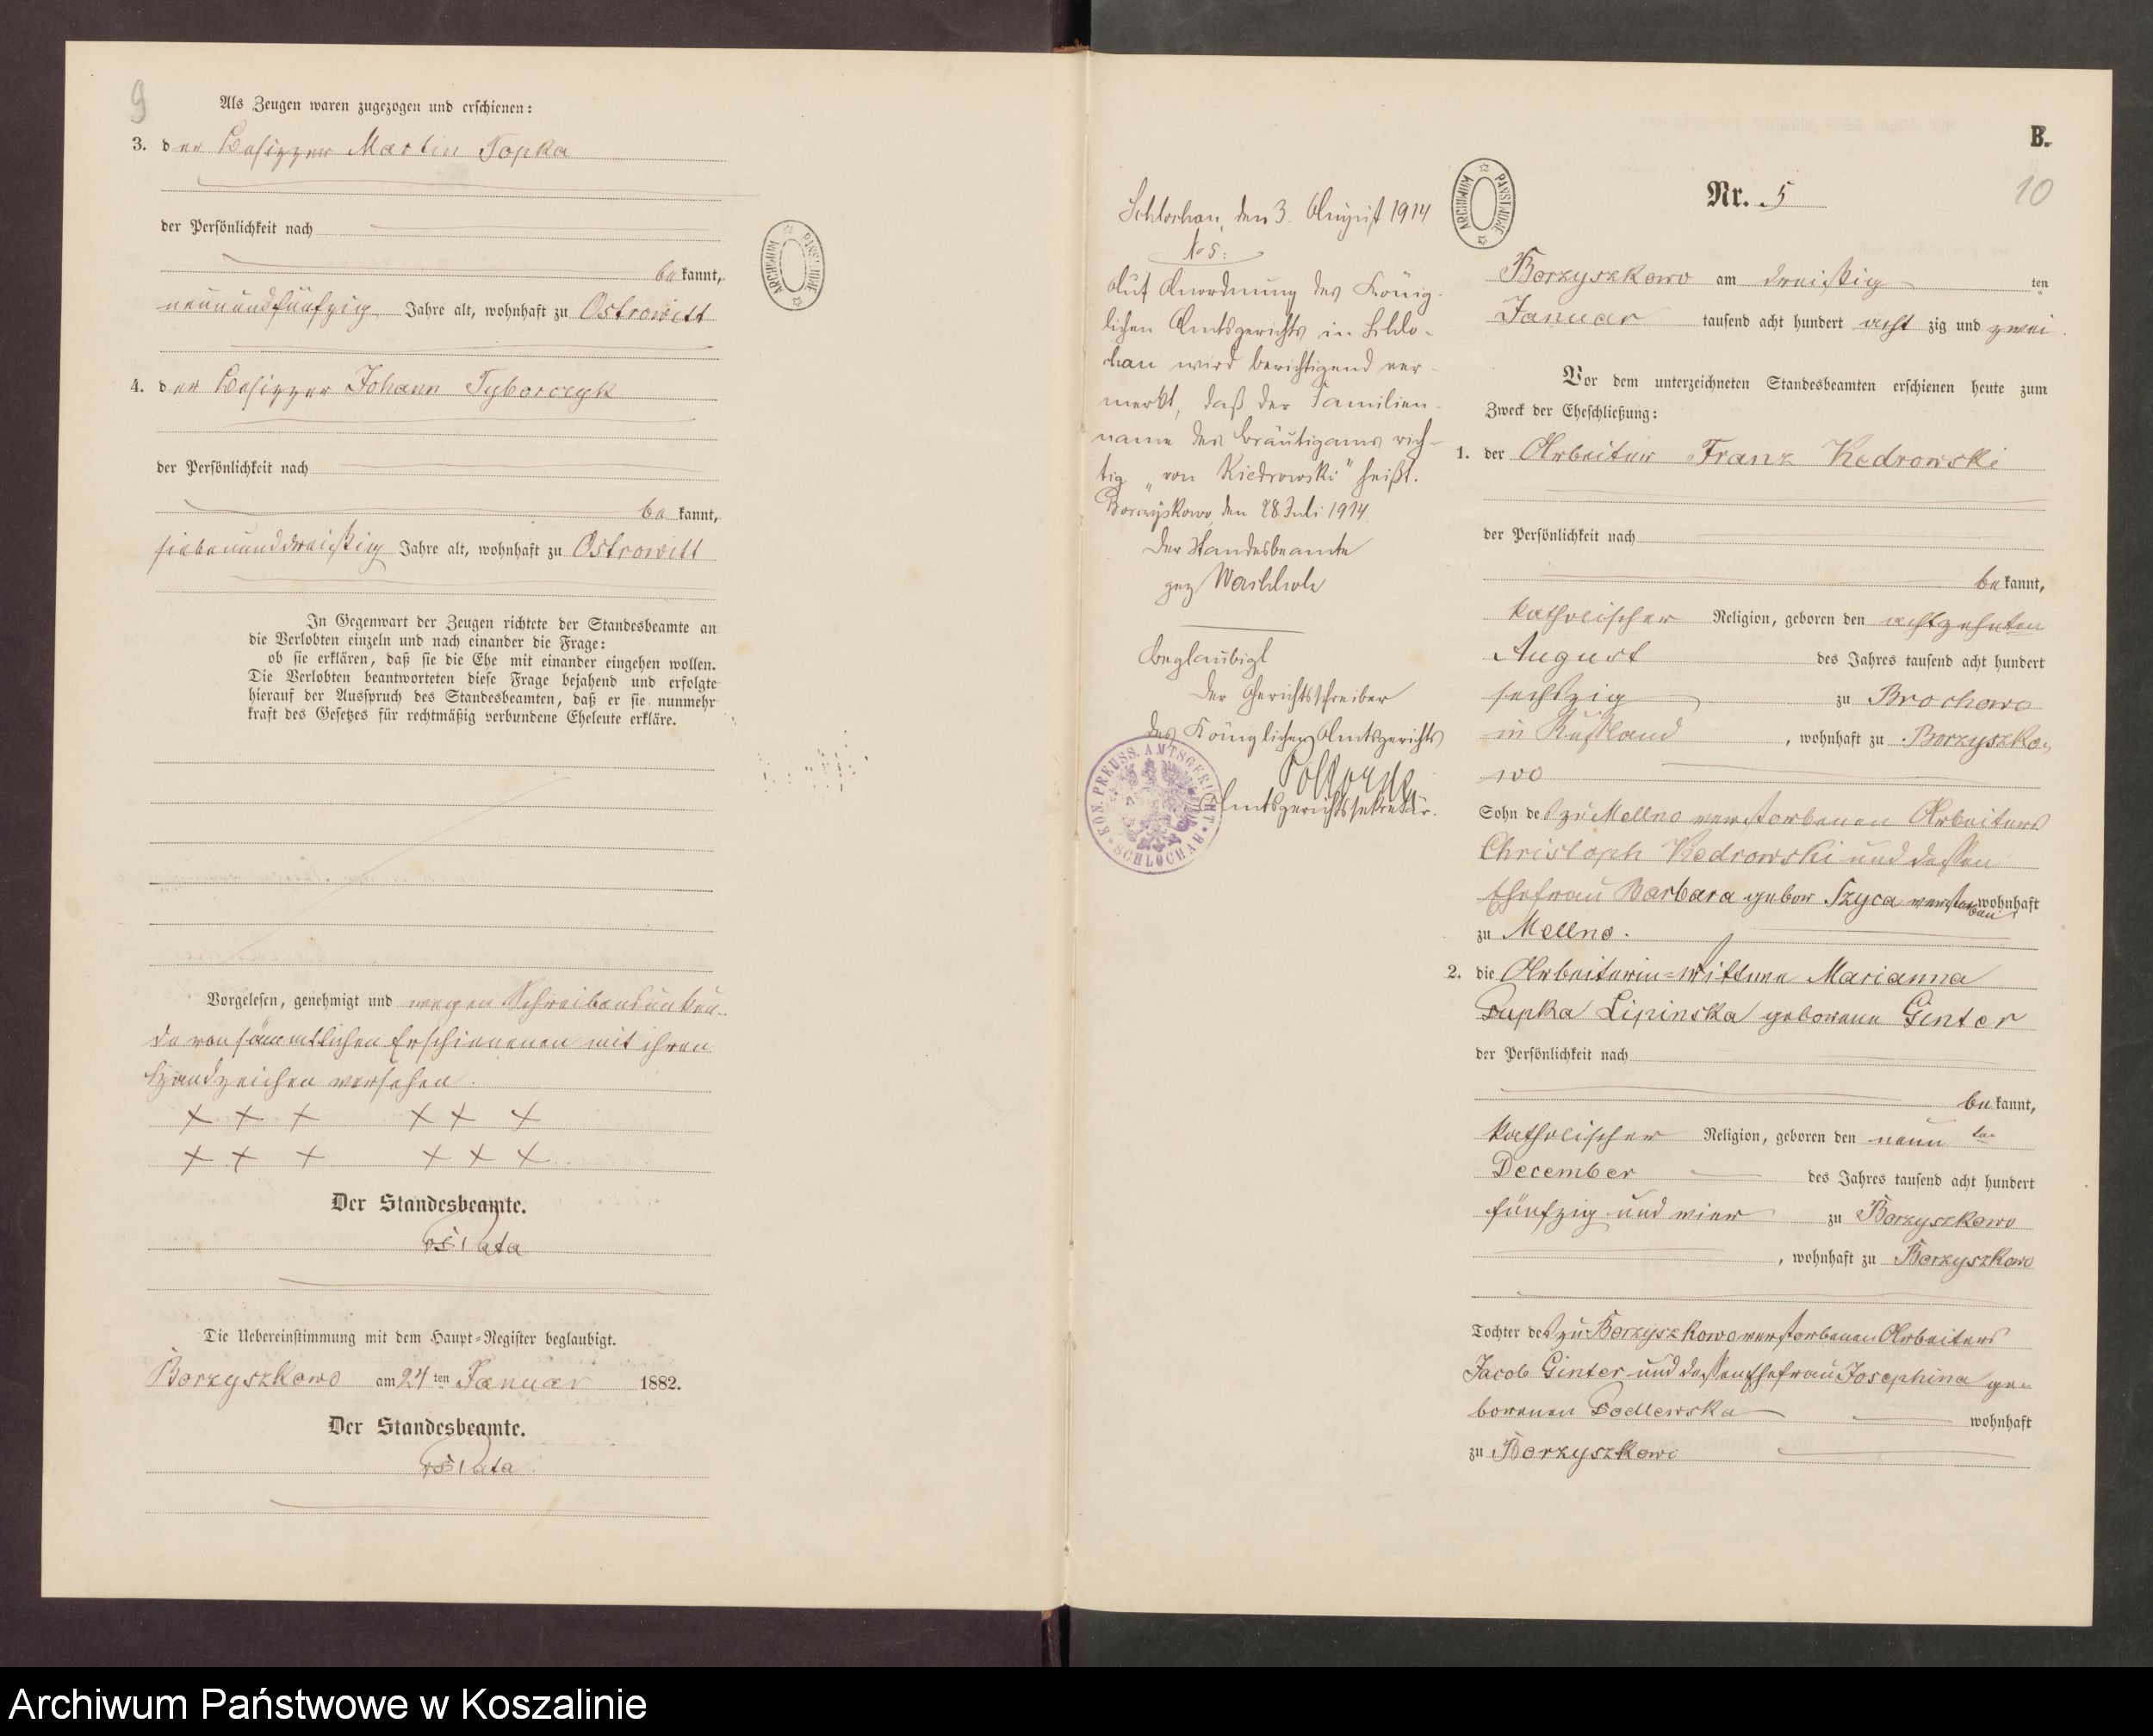 9
Als Zeugen waren zugezogen und erschienen:
3. der Besitzer Martin Topka
der Persönlichkeit nach
bekannt,
neunundfünfzig Jahre alt, wohnhaft zu Ostrowitt
4. der Besitzer Johann Tyborczyk
der Persönlichkeit nach
bekannt,
siebenunddreißig Jahre alt, wohnhaft zu Ostrowitt
In Gegenwart der Zeugen richtete der Standesbeamte an
die Verlobten einzeln und nach einander die Frage:
ob sie erklären, daß sie die Ehe mit einander eingehen wollen.
Die Verlobten beantworteten diese Frage bejahend und erfolgte
hierauf der Ausspruch des Standesbeamten, daß er sie nunmehr
kraft des Gesetzes für rechtmäßig verbundene Eheleute erkläre.
Vorgelesen, genehmigt und wegen Schreibensunkun-
de von sämmtlichen Erschienenen mit ihren
Handzeichen versehen.
+ + + + + +
+ + + + + +
Der Standesbeamte.
Die Uebereinstimmung mit dem Haupt-Register beglaubigt.
Borzyszkowo am 24ten Januar 1882.
Der Standesbeamte.
ARCHIWUM PAŃSTWOWE
B.
10
Nr. 5
Schlochau, den 3. August 1914
No 5:
Auf Anordnung des König-
lichen Amtsgerichts in Schlo-
chau wird berichtigend ver-
merkt, daß der Familien-
name des Bräutigams rich-
tig "von Kiedrowski" heißt.
Borzyskowo, den 28 Juli 1914
Der Standesbeamte
gez
Beglaubigt
Der Gerichtsschreiber
des Königlichen Amtsgerichts
Amtsgerichtssekretär.
KÖN. PREUSS. AMTSGERICHT SCHLOCHAU
ARCHIWUM PAŃSTWOWE
Borzyszkowo am dreißig ten
Januar tausend acht hundert acht zig und zwei.
Vor dem unterzeichneten Standesbeamten erschienen heute zum
Zweck der Eheschließung:
1. der Arbeiter Franz Kedrowski
der Persönlichkeit nach
bekannt,
katholischer Religion, geboren den achtzehnten
August des Jahres tausend acht hundert
sechszig zu Brochowo
in Rußland, wohnhaft zu Borzyszko-
wo
Sohn des zu Mellno verstorbenen Arbeiters
Christoph Kedrowski und dessen
Ehefrau Barbara gebor Szyca verstorben wohnhaft
zu Mellno.
2. die Arbeiterin-Wittwe Marianna
Pupka Lipinska geborene Ginter
der Persönlichkeit nach
bekannt,
katholischer Religion, geboren den neun ten
December des Jahres tausend acht hundert
fünfzig und vier zu Borzyszkowo
, wohnhaft zu Borzyszkowo
Tochter des zu Borzyszkowo verstorbenen Arbeiters
Jacob Ginter und dessen Ehefrau Josephina ge-
borenen Podlewska wohnhaft
zu Borzyszkowo
Archiwum Państwowe w Koszalinie